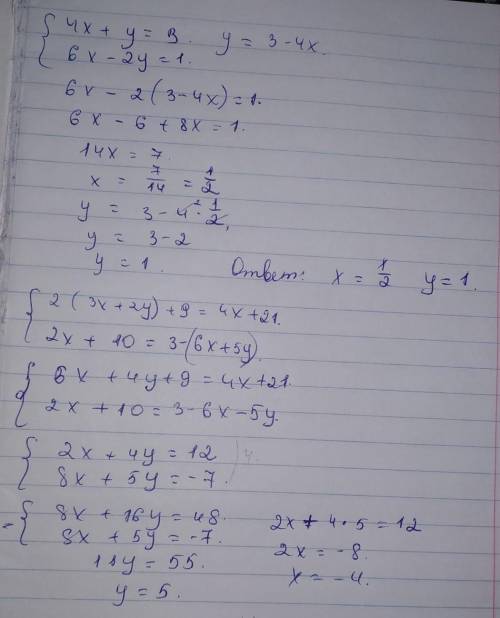 4x + y = 3. y = 3 - 4x.
6x - 2y = 1.
6x - 2(3 - 4x) = 1.
6x - 6 + 8x = 1.
14x = 7.
x = 7/14 = 1/2
y = 3 - 4 · 1/2,
y = 3 - 2
y = 1. Ответ: x = 1/2 y = 1.
2(3x + 2y) + 9 = 4x + 21.
2x + 10 = 3 - (6x + 5y).
6x + 4y + 9 = 4x + 21.
2x + 10 = 3 - 6x - 5y.
2x + 4y = 12
8x + 5y = -7.
8x + 16y = 48. 2x + 4 · 5 = 12
8x + 5y = -7. 2x = -8.
11y = 55. x = -4.
y = 5.